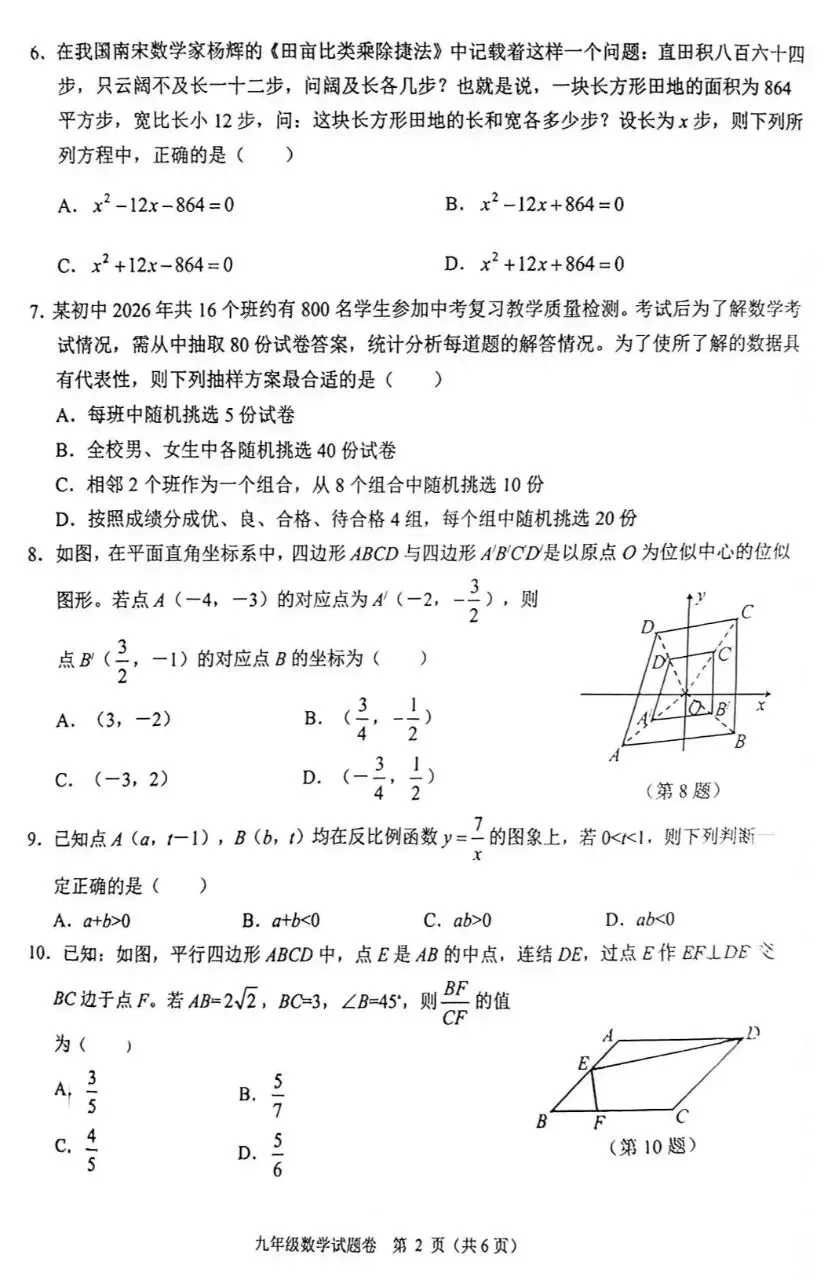 6．在我国南宋数学家杨辉的《田亩比类乘除捷法》中记载着这样一个问题：直田积八百六十四
步，只云阔不及长一十二步，问阔及长各几步？也就是说，一块长方形田地的面积为 864
平方步，宽比长小 12 步，问：这块长方形田地的长和宽各多少步？设长为 x 步，则下列所
列方程中，正确的是（　　）
A．x²－12x－864＝0　　B．x²－12x＋864＝0
C．x²＋12x－864＝0　　D．x²＋12x＋864＝0
7．某初中 2026 年共 16 个班约有 800 名学生参加中考复习教学质量检测。考试后为了解数学考
试情况，需从中抽取 80 份试卷答案，统计分析每道题的解答情况。为了使所了解的数据具
有代表性，则下列抽样方案最合适的是（　　）
A．每班中随机挑选 5 份试卷
B．全校男、女生中各随机挑选 40 份试卷
C．相邻 2 个班作为一个组合，从 8 个组合中随机挑选 10 份
D．按照成绩分成优、良、合格、待合格 4 组，每个组中随机挑选 20 份
8．如图，在平面直角坐标系中，四边形 ABCD 与四边形 A′B′C′D′是以原点 O 为位似中心的位似
图形。若点 A（－4，－3）的对应点为 A′（－2，－3/2），则
点 B′（3/2，－1）的对应点 B 的坐标为（　　）
A．（3，－2）　　B．（3/4，－1/2）
C．（－3，2）　　D．（－3/4，1/2）
y
D
C
D′
C′
O
x
A′
B′
A
B
（第 8 题）
9．已知点 A（a，t－1），B（b，t）均在反比例函数 y＝7/x 的图象上，若 0<t<1，则下列判断一
定正确的是（　　）
A．a+b>0　　B．a+b<0　　C．ab>0　　D．ab<0
10．已知：如图，平行四边形 ABCD 中，点 E 是 AB 的中点，连结 DE，过点 E 作 EF⊥DE 交
BC 边于点 F。若 AB=2√2，BC=3，∠B=45°，则 BF/CF 的值
为（　　）
A．3/5　　B．5/7
C．4/5　　D．5/6
A
D
E
B
F
C
（第 10 题）
九年级数学试题卷　第 2 页（共 6 页）